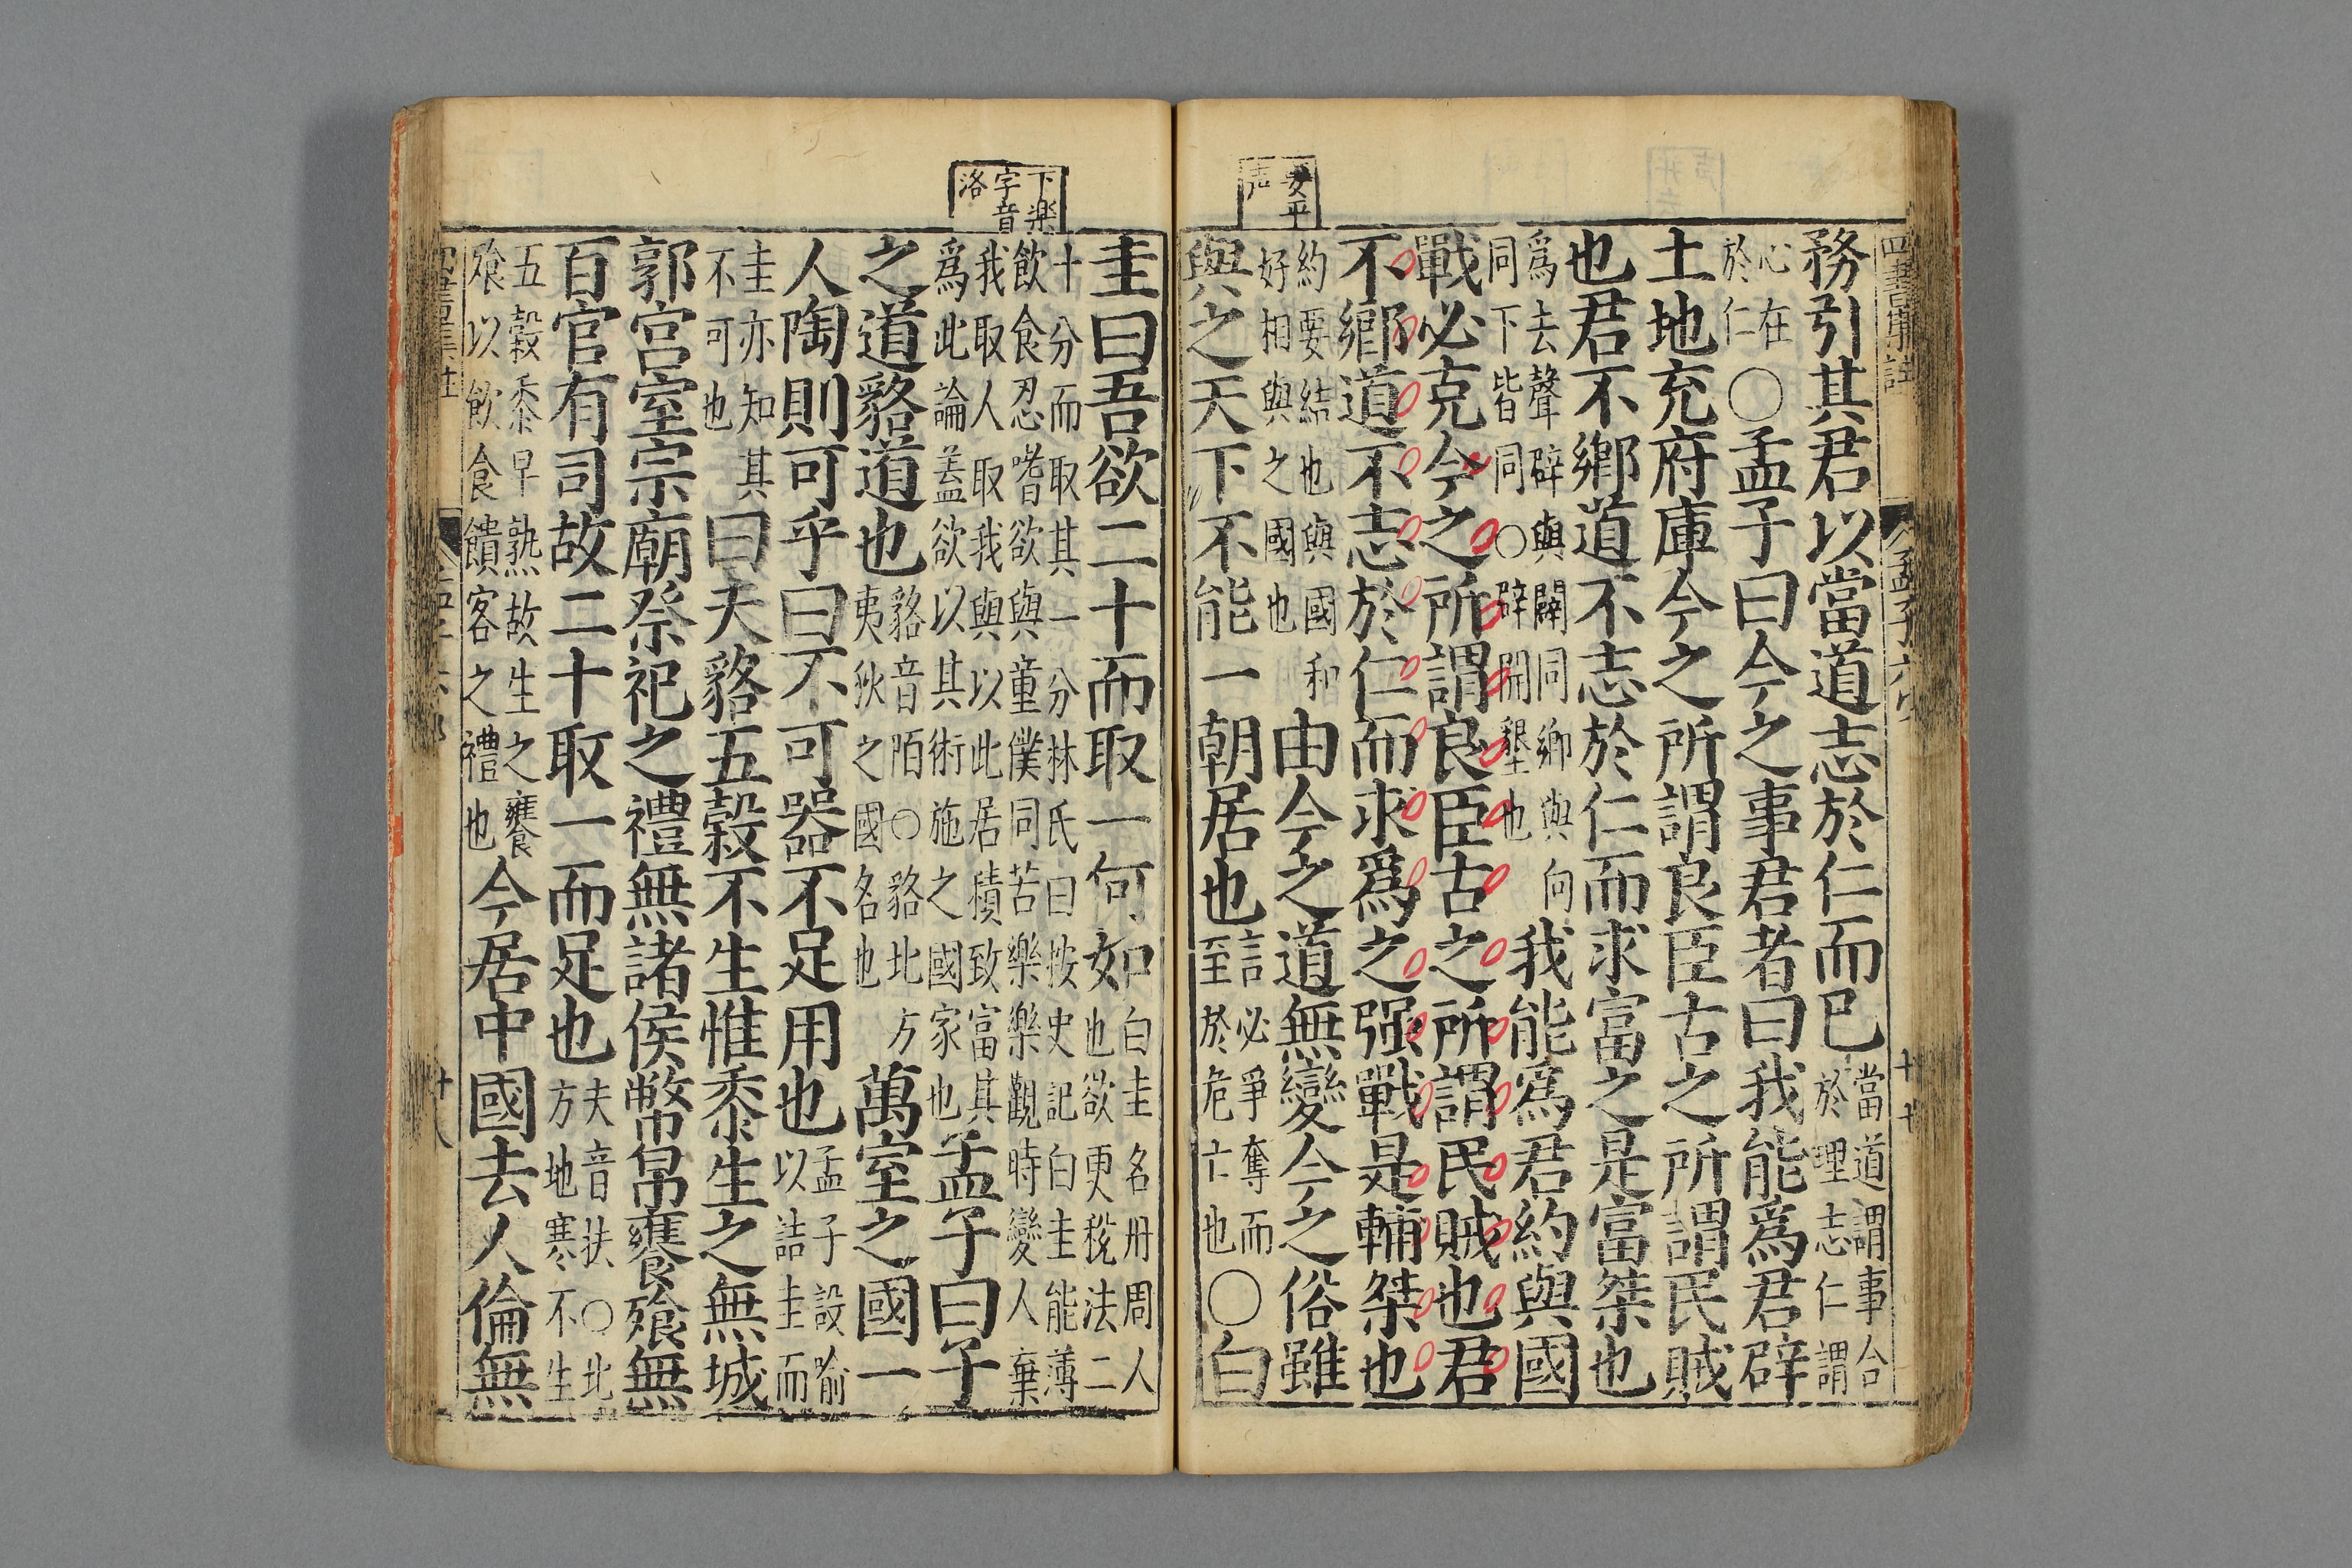 要平
声
務引其君以當道志於仁而已當道謂事合
於理志仁謂
心在
於仁〇孟子曰今之事君者曰我能爲君辟
土地充府庫今之所謂良臣古之所謂民賊
也君不鄉道不志於仁而求富之是富桀也
爲去聲辟與闢同鄉與向
同下皆同〇辟開墾也我能爲君約與國
戰必克今之所謂良臣古之所謂民賊也君
不鄉道不志於仁而求爲之强戰是輔桀也
約要結也與國和
好相與之國也由今之道無變今之俗雖
與之天下不能一朝居也言必爭奪而
至於危亡也〇白
下樂
字音
洛
圭曰吾欲二十而取一何如白圭名丹周人
也欲更稅法二
十分而取其一分林氏曰按史記白圭能薄
飲食忍嗜欲與童僕同苦樂樂觀時變人棄
我取人取我與以此居積致富其
爲此論蓋欲以其術施之國家也孟子曰子
之道貉道也貉音陌〇貉北方
夷狄之國名也萬室之國一
人陶則可乎曰不可器不足用也孟子設喻
以詰圭而
圭亦知其
不可也曰夫貉五穀不生惟黍生之無城
郭宮室宗廟祭祀之禮無諸侯幣帛饔飧無
百官有司故二十取一而足也夫音扶〇北
方地寒不生
五穀黍早熟故生之饔
飧以飲食饋客之禮也今居中國去人倫無
十八